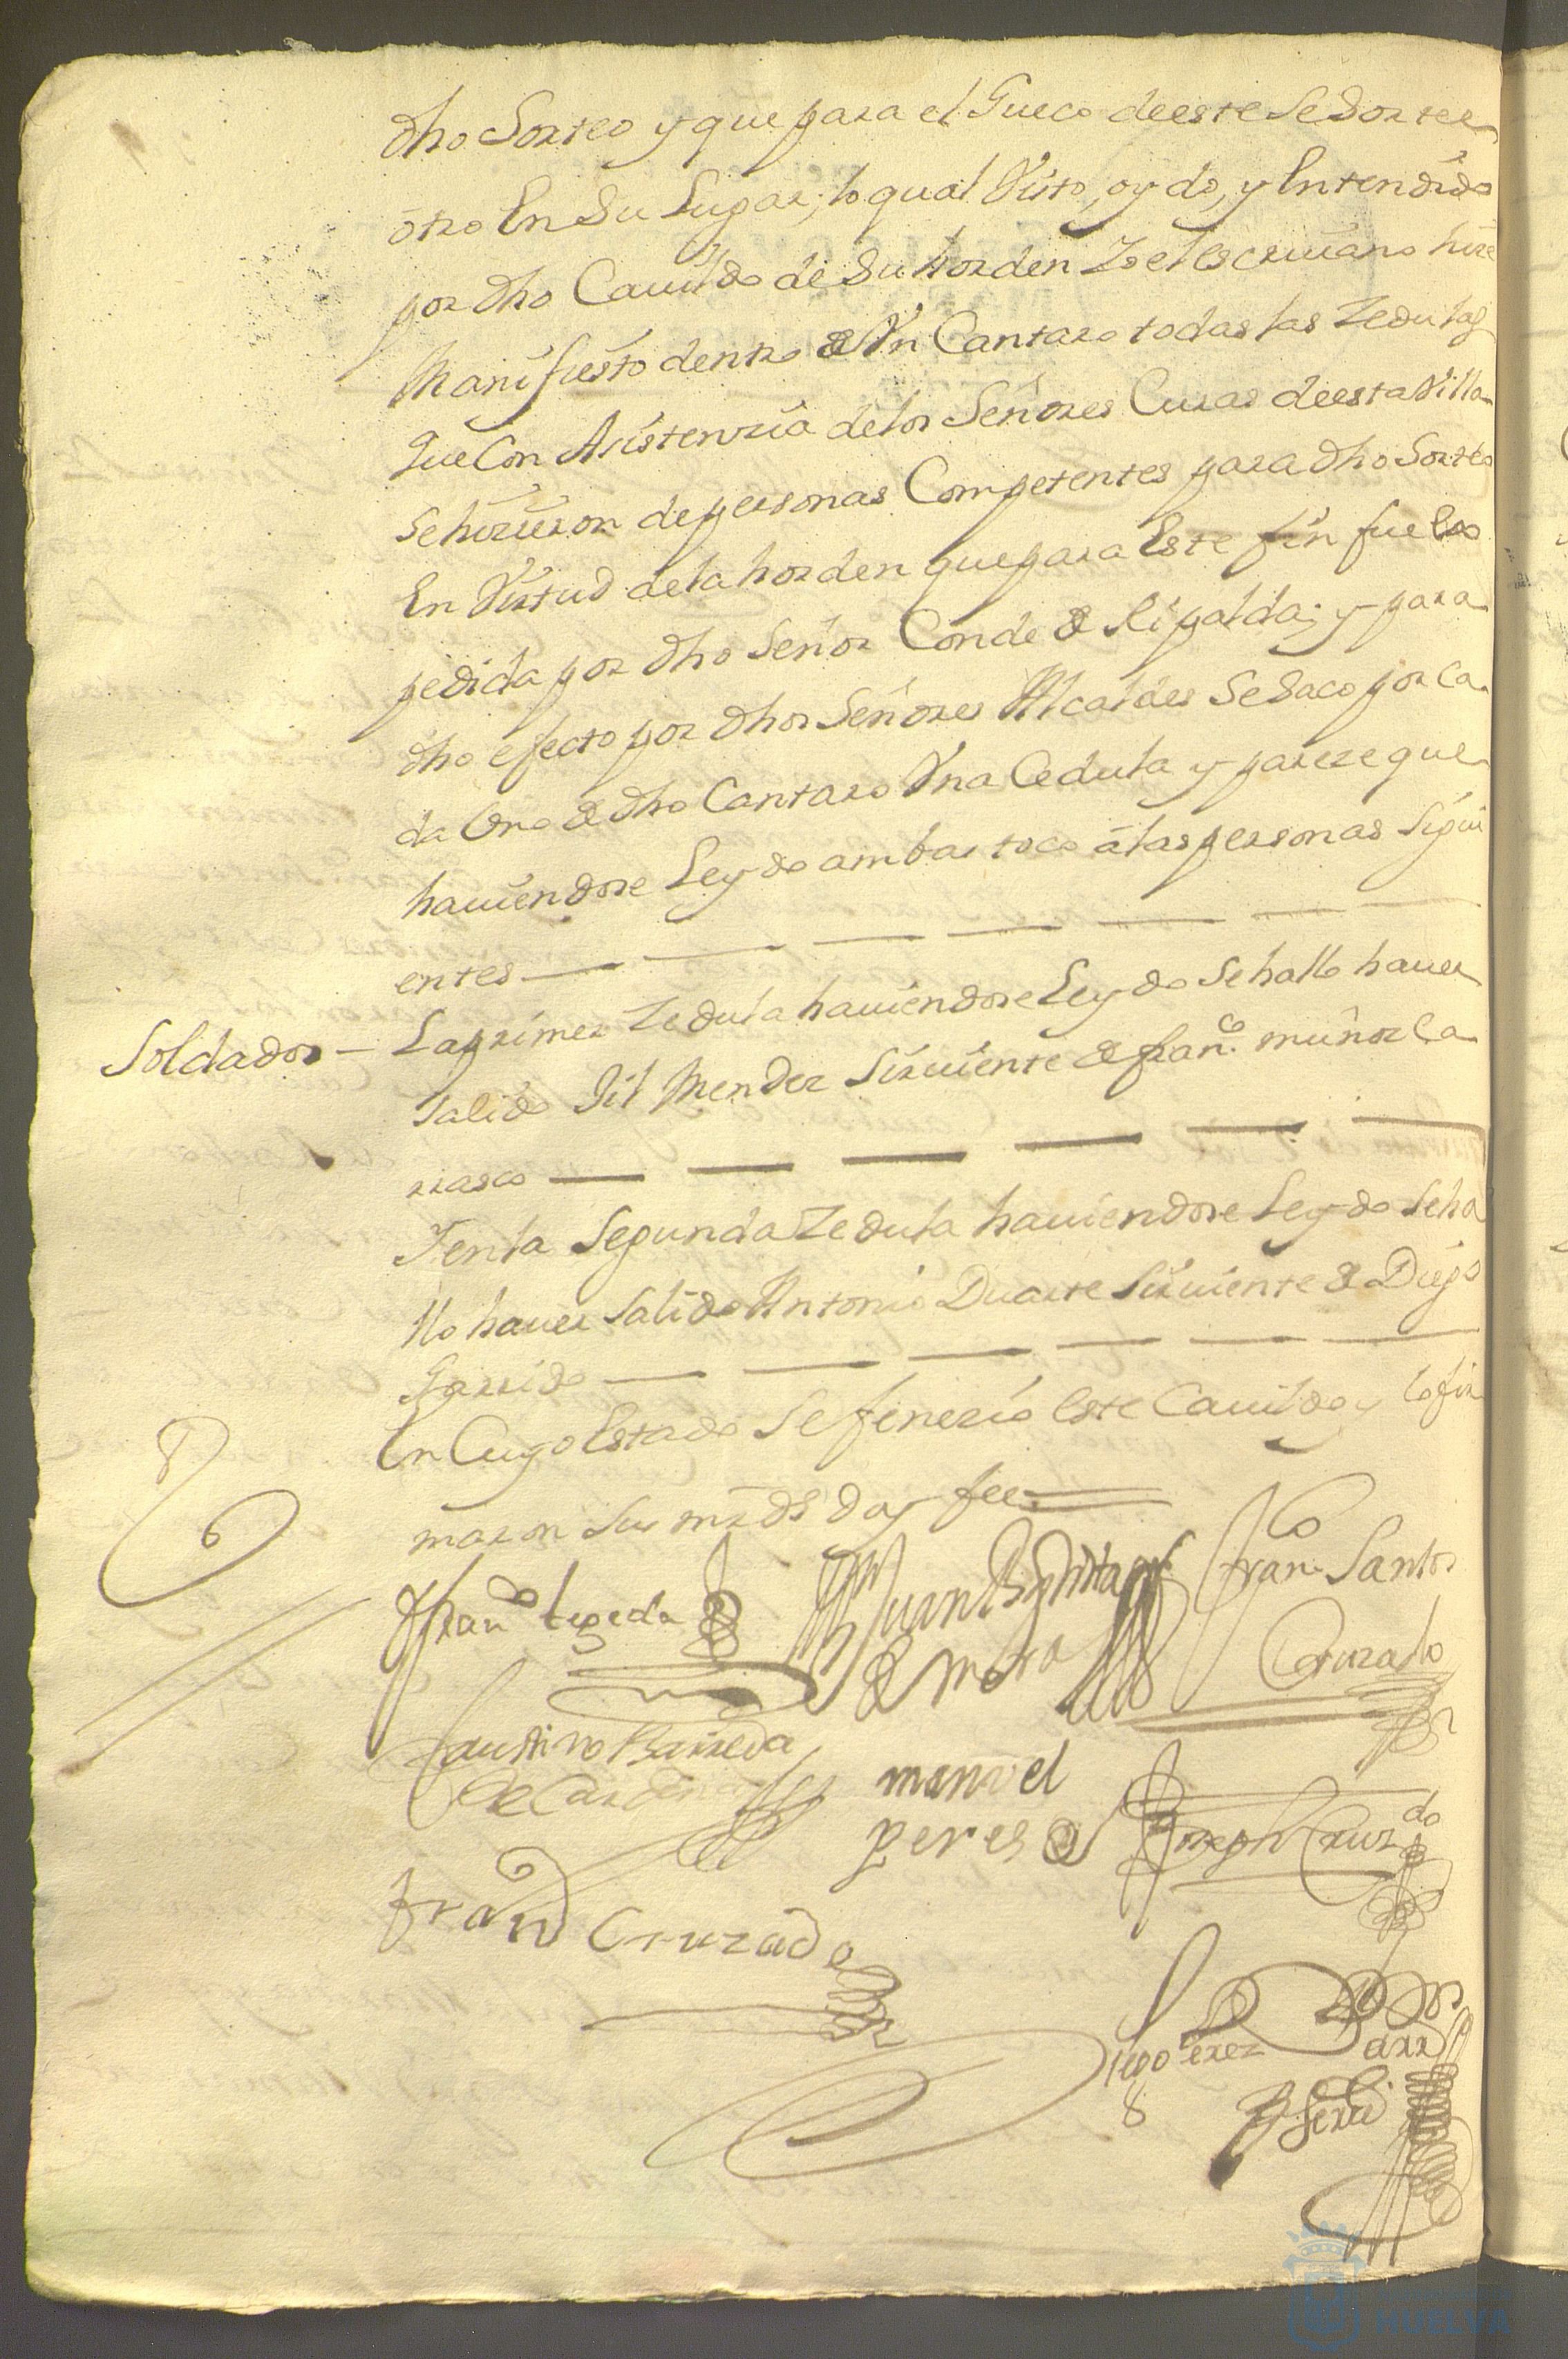 dho Sorteo y que para el Gueco deeste Se Sortee
otro En Su Lugar; lo qual Visto, oydo, y Entendido
por dho Cauildo de Su horden Yo el escriuano hize
Manifiesto dentro de Vn Cantaro todas las Zedulas
que Con Asistenzia delos Señores Curas deesta Villa
Se hizieron de personas Competentes para dho Sorteo
En Virtud dela horden que para Este fin fue
pedida por dho Señor Conde de Ripalda; y para
dho efecto por dhos Señores Alcaldes Se Saco por Ca
da Vno de dho Cantaro Vna Cedula y pareze que
hauiendose Leydo ambas toco álas personas Sigui
entes
Soldados - La primer Zedula hauiendose Leydo Se hallo hauer
Salido Gil Mendez Siruiente de franco muños Ca
rrasco
Y enla Segunda Zedula hauiendose Leydo Se ha
llo hauer Salido Antonio Duarte Siruiente de Diego
Garrido
En Cuyo Estado Se fenezio Este Cauildo y lo fir
maron Sus mrds doy fee
franco tegeda
Juan Baptista
de mora
Franco Santos
Cruzado
Faustino Barreda
de Carde
manuel
peres
Joseph Cruzdo
fran Cruzado
Diego Perez